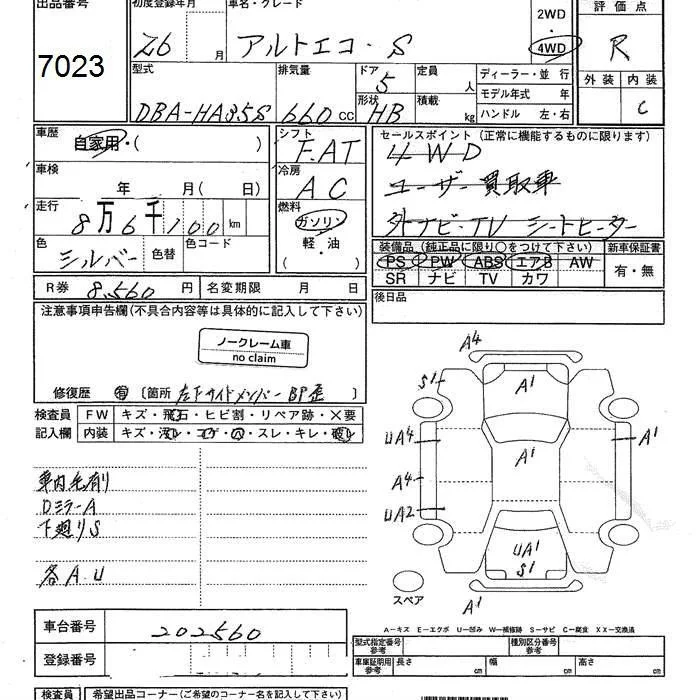 出品番号 初度登録年月 車名・グレード 2WD 評価点
7023 26 月 アルトエコ・S 4WD R
型式 排気量 ドア 定員 ディーラー・並行 外装 内装
DBA-HA35S 660 CC 5 人 モデル年式 年 C
形状 HB 積載 kg ハンドル 左・右
車歴 自家用・( ) シフト F.AT セールスポイント (正常に機能するものに限ります)
4WD
車検 年 月( 日) 冷房 AC ユーザー買取車
走行 8万6千100 km 燃料 ガソリン 軽・油 外ナビ・TV シートヒーター
色 シルバー 色替 色コード 装備品 (純正品に限り○をつけて下さい) 新車保証書
PS PW ABS エアB AW 有・無
SR ナビ TV カワ
R券 8,560 円 名変期限 月 日 後日品
注意事項申告欄(不具合内容等は具体的に記入して下さい)
ノークレーム車
no claim
修復歴 有 〔箇所 左下サイドメンバー BP歪 〕
検査員 FW キズ・飛石・ヒビ割・リペア跡・X要
記入欄 内装 キズ・汚れ・コゲ・穴・スレ・キレ・破れ
車内毛有り
DミラーA
下廻りS
各A.U
A4
S1 A1
UA4 A1 A1
A4
UA2
UA1
S1
スペア A1
A－キズ E－エクボ U－凹み W－補修跡 S－サビ C－腐食 XX－交換済
車台番号 202560
型式指定番号 参考 種別区分番号 参考
登録番号 車庫証明用 参考 長さ cm 幅 cm 高さ cm
検査員 希望出品コーナー(ご希望のコーナー名を記入して下さい)